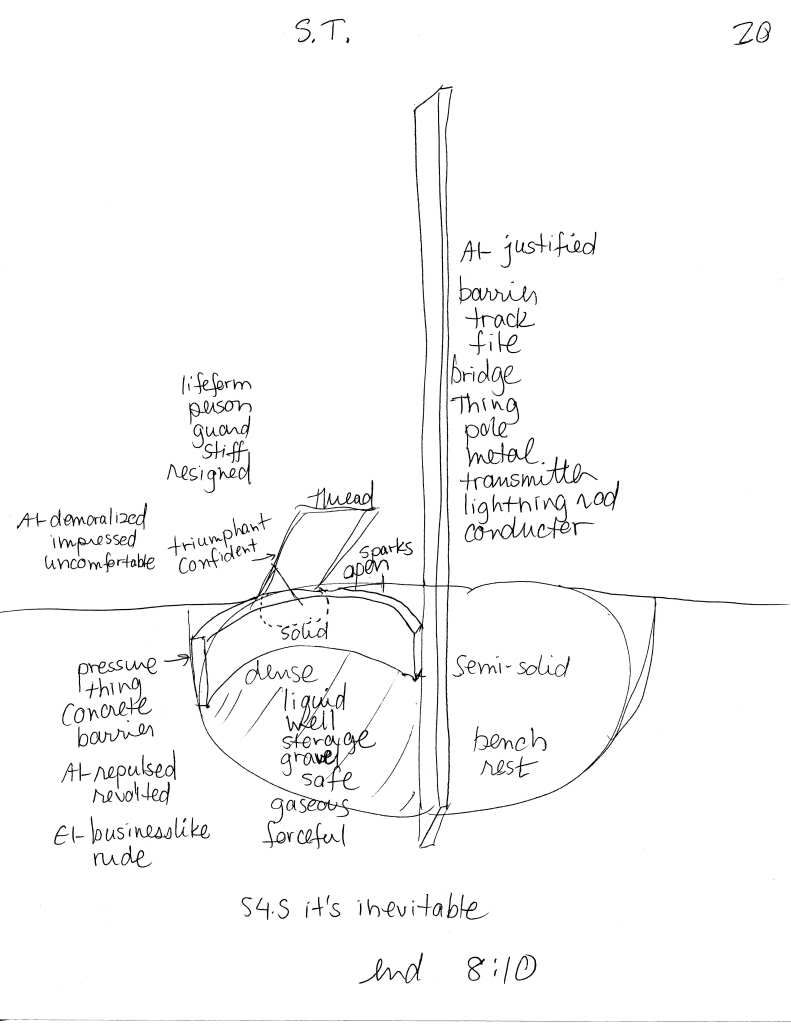 S.T.
20
AI- justified
barrier
track
file
bridge
Thing
pole
metal.
transmitter
lightning rod
conducter
lifeform
person
guard
stiff
resigned
thread
AI-demoralized
impressed
uncomfortable
triumphant
confident
sparks
open
solid
pressure
thing
concrete
barrier
dense
liquid
well
storage
gravel
safe
gaseous
forceful
semi-solid
bench
rest
AI-repulsed
revolted
EI-businesslike
rude
S4.5 it's inevitable
end 8:10